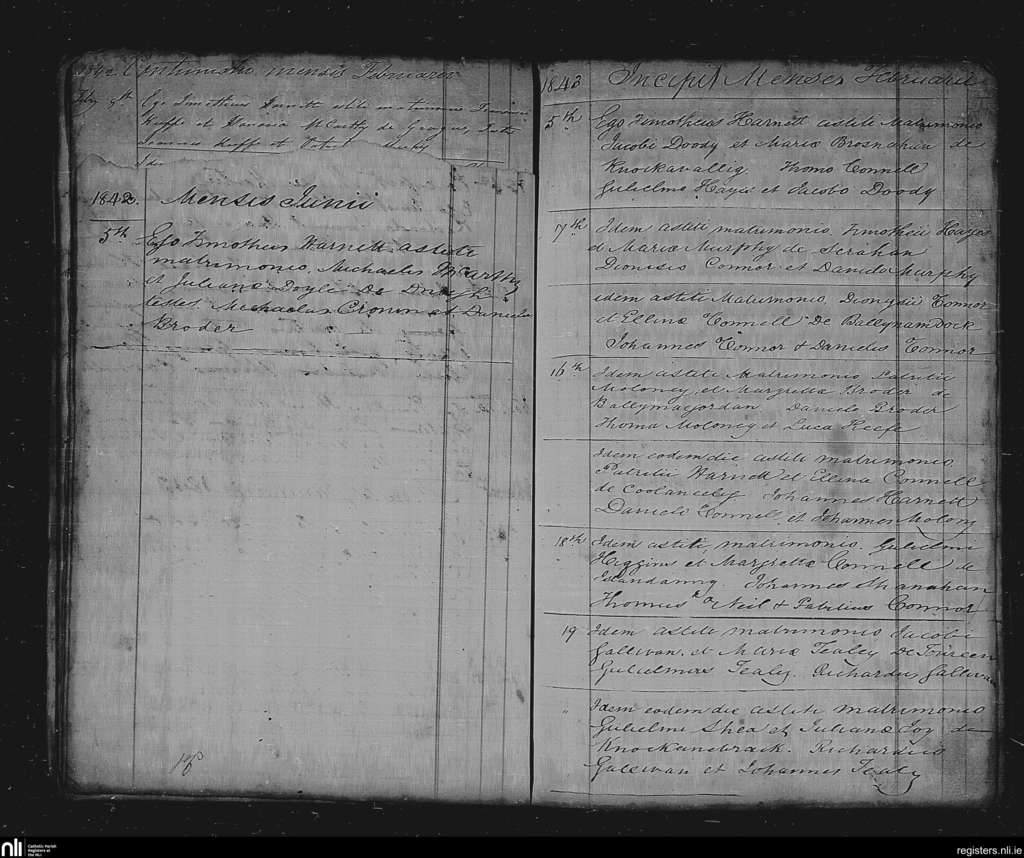 1842 Continuatio mensis Februarii
Feby 8th Ego Timotheus Harnett astiti matrimonio
Keeffe et Honoria McCarthy de
Keeffe et
1842. Mensis Junii
5th Ego Timotheus Harnett astiti
matrimonio, Michaelis McCarthy
et Juliana Doyle De
testes Michaelas Cronin et Daniele
Broder
18
1843 Incipit Menses Februarii
5th Ego Timotheus Harnett astiti Matrimonio
Jacobi Doody et Maria Brosnahan de
Knockavallig Thomo Connell
Gulielmo Hayes et Jacobo Doody
7th Idem astiti matrimonio, Timothei Hayes
et Maria Murphy de Serahan
Dionisio Connor et Daniele Murphy
idem astiti Matrimonio, Dionysii Connor
et Ellena Connell De Ballynamdock
Johannes Connor & Danielis Connor
16th Idem astiti Matrimonio, Patritii
Moloney, et Margreta Broder de
Ballymacjordan Daniele Broder
Thoma Moloney et Luca Keefe
Idem eodem die astiti matrimonio
Patritii Harnett et Ellena Connell
de Johannes Harnett
Daniele Connell, et Johannes Molony
18th Idem astiti, matrimonio. Gulielmi
Higgins et Margretta Connell de
Islandanny. Johannes Shanahan
Thomas O Neil & Patritius Connor
19 Idem astiti matrimonio Jacobi
Gallivan. et Maria Tealey De Toureen
Gulielmus Tealey. Richardus Gallivan
" Idem eodem die astiti matrimonio
Gulielmi Shea et Juliana Joy de
Knockanebrack. Richardus
Gallivan et Johannes Tealy
nli Catholic Parish
Registers at
the NLI
registers.nli.ie